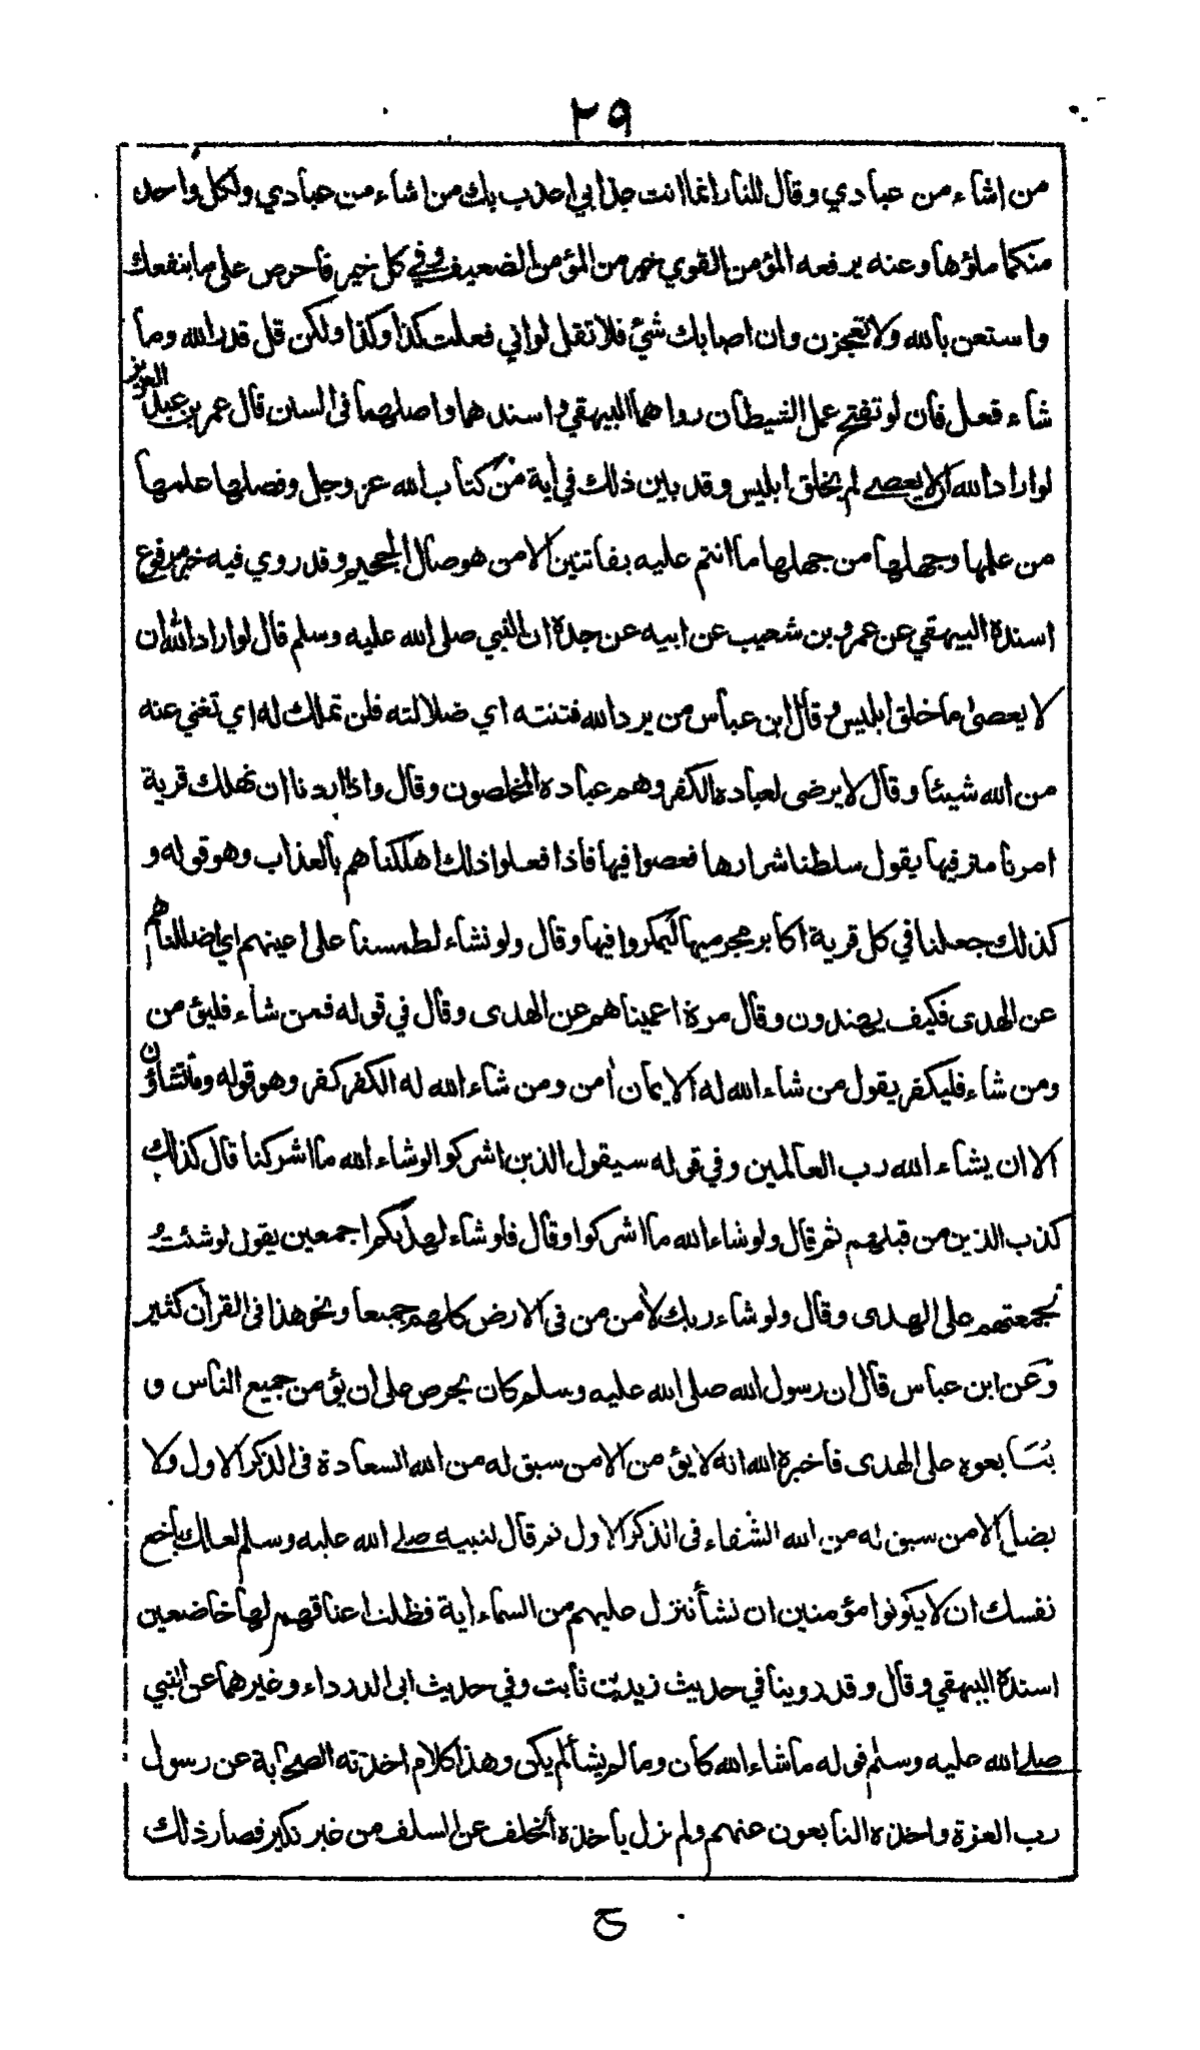 ٢٩
من اشاء من عبادي وقال للنار انما انت عذابي اعذب بك من اشاء من عبادي ولكل واحد
منكما ملؤها وعنه يرفعه المؤمن القوي خير من المؤمن الضعيف وفي كل خير فاحرص على ما ينفعك
واستعن بالله ولا تعجزن وان اصابك شئ فلا تقل لو اني فعلت كذا وكذا ولكن قل قدر الله وما
شاء فعل فان لو تفتح عمل الشيطان رواهما البيهقي و اسندهما واصلهما في السان قال عمر بن عبد العزيز
لو اراد الله ان لا يعصے لم يخلق ابليس وقد بين ذلك في اية من كتاب الله عز وجل وفصلها علمها
من علمها وجهلها من جهلها ما انتم عليه بفاتنين الا من هو صال الجحيم وقد روي فيه خبر مرفوع
اسنده البيهقي عن عمرو بن شعيب عن ابيه عن جده ان النبي صلى الله عليه وسلم قال لو اراد الله ان
لا يعصى ما خلق ابليس و قال ابن عباس من يرد الله فتنته اي ضلالته فلن تملك له اي تغني عنه
من الله شيئا وقال لا يرضى لعباده الكفر وهم عباده المخلصون وقال واذا اردنا ان نهلك قرية
امرنا مترفيها يقول سلطنا شرارها فعصوا فيها فاذا فعلوا ذلك اهلكناهم بالعذاب وهو قوله و
كذلك جعلنا في كل قرية اكابر مجرميها ليمكروا فيها وقال ولو نشاء لطمسنا على اعينهم اي اضللناهم
عن الهدى فكيف يهتدون وقال مرة اعميناهم عن الهدى وقال في قوله فمن شاء فليؤمن
ومن شاء فليكفر يقول من شاء الله له الايمان اٰمن ومن شاء الله له الكفر كفر وهو قوله وما تشاؤن
الا ان يشاء الله رب العالمين وفي قوله سيقول الذين اشركوا لو شاء الله ما اشركنا قال كذلك
كذب الذين من قبلهم ثم قال ولو شاء الله ما اشركوا وقال فلو شاء لهداكم اجمعين يقول لو شئتُ
لجمعتهم على الهدى وقال ولو شاء ربك لأمن من في الارض كلهم جميعا ونحو هذا في القرأن كثير
وَعَن ابن عباس قال ان رسول الله صلى الله عليه وسلم كان يحرص على ان يؤمن جميع الناس و
يُتَابعوه على الهدى فاخبره الله انه لا يؤمن الا من سبق له من الله السعادة في الذكر الاول ولا
يضل الا من سبق له من الله الشفاء في الذكر الاول ثم قال لنبيه صلے الله عليه وسلم لعلك باخع
نفسك ان لا يكونوا مؤمنين ان نشأ ننزل عليهم من السماء اية فظلت اعناقهم لها خاضعين
اسنده البيهقي وقال وقد روينا في حديث زيد بن ثابت وفي حديث ابى الدرداء وغيرهما عن النبي
صلے الله عليه وسلم قوله ما شاء الله كان وما لم يشأ لم يكن وهذا كلام اخذته الصحابة عن رسول
رب العزة واخذه التابعون عنهم ولم يزل ياخذه الخلف عن السلف من غير نكير فصار ذلك
ح